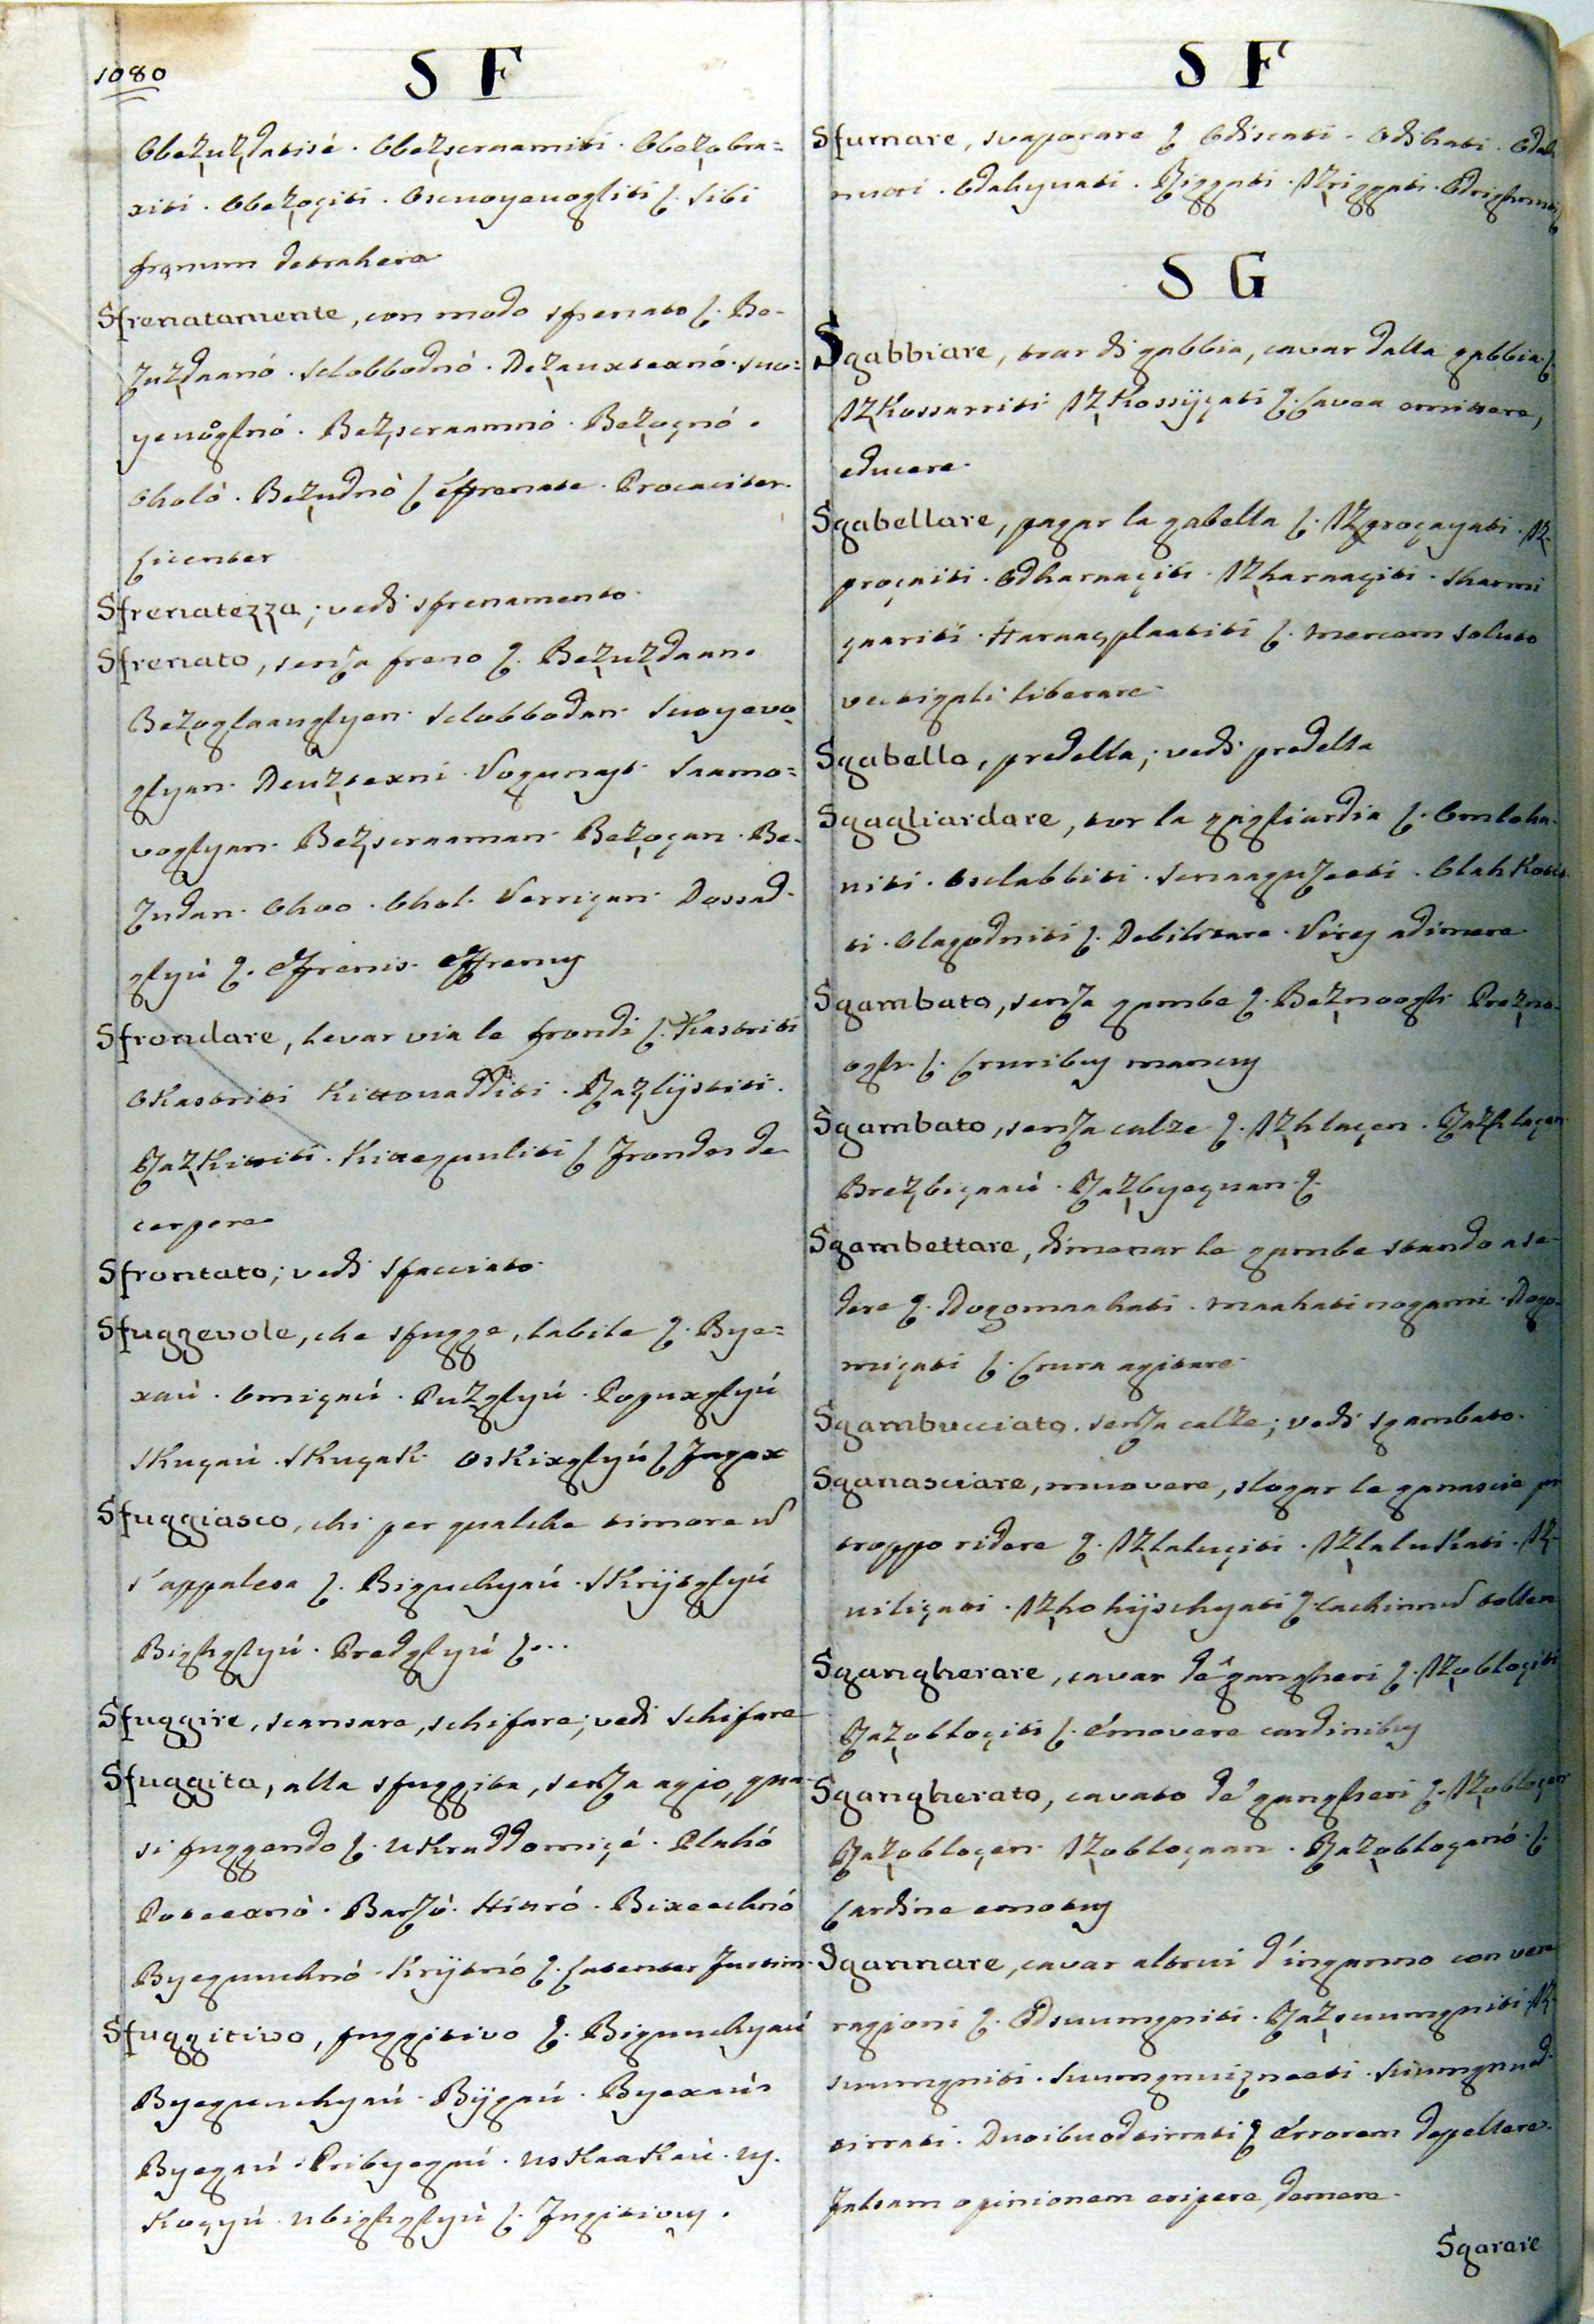 1080
S F
Obezuzdatisé. Obezscraamiti. Obezobra=
xiti. Obezoçiti. Oscuoyeuogliti ʃ. Sibi
frenum detrahere
Sfrenatamente, con modo sfrenato ʃ. Be-
zuzdaanó. Slobbodnó. Dezauxtexnó. Suo=
yeuoglnó. Bezscraamnó. Bezoçnó.
Oholò. Bezudnò ʃ effrenate. Procaciter.
licenter
Sfrenatezza; vedi sfrenamento.
Sfrenato, senza freno ʃ. Bezuzdaan.
Bezoglaauglyen. Slobbodan. Suoyevo
glyan. Deuztexni. Vogunayt. Saamo=
voglyan. Bezscraaman. Bezoçan. Be-
zudan. Ohoo. Ohol. Verriçan. Dossad-
glyú ʃ. Effrenis. Effrenus
Sfrondare, levar via le frondi ʃ. Kastriti
Okastriti Kittouadditi. Razlijstiti.
Razkititi. Kittegunliti ʃ frondes de
cerpere
Sfrontato; vedi sfacciato.
Sfuggevole, che sfugge, labile ʃ. Bye=
xaú. Omiçaú. Puzglyú. Poguxglyú
Skuçaú. Skuçak. Oskixglyú ʃ Fugax
Sfuggiasco, chi per qualche timore ń
s'appalesa ʃ. Biguchyaú. Skrijtglyú
Bighglyú. Predglyú ʃ...
Sfuggire, scansare, schifare; vedi Schifare
Sfuggita, alla sfuggita, senza agio, qua-
si fuggendo ʃ. Ukraddomiçé. Plahó
Poteexnò. Barzó. Hitró. Bixeechnó
Byeguuchnó. Krijtnó ʃ. Latenter Furtim.
Sfuggitivo, fuggitivo ʃ. Biguuchyaú
Byeguuchyaú. Bijgaú. Byexaú.
Byegaú. Pribyegaú. Uskaakaú. Uy.
Koçyú. Ubighglyú ʃ. Fugitivus.
S F
Sfumare, svaporare ʃ Odiscati. Odihati. Odah
nuti. Odahyuati. Riggati. Izriggati. Odrighnuti
S G
Sgabbiare, trar di gabbia, cavar dalla gabbia ʃ.
Izkossarriti Izkossijçati ʃ. Cavea emittere,
educere.
Sgabellare, pagar la gabella ʃ. Izproçayati. Iz-
proçaiti. Odharaaçiti. Izharaaçiti. Sharmi
çaariti. Haraaçplaatiti ʃ. Mercem soluto
vectigali liberare.
Sgabello, predella; vedi predella
Sgagliardare, tor la gagliardia ʃ. Omloha-
uiti. Oslabbiti. Snaaguzeeti. Olahkoti-
ti. Olagodniti ʃ. Debilitare. Vires adimere.
Sgambato, senza gambe ʃ. Beznoogh. Prezno-
ogh. ʃ. Cruribus mancus
Sgambato, senza calze ʃ. Izhlaçen. Razhlaçen
Brezbiçaaú. Razbyeçuan. ʃ.
Sgambettare, dimenar le gambe stando a se-
dere ʃ. Nogomaahati. Maahatinogami. Nogo-
miçati ʃ. Crura agitare.
Sgambucciato. senza calze; vedi sgambato.
Sganasciare, muovere, slogar le ganascie per
troppo ridere ʃ. Izlaluçiti. Izlalukati. Iz-
uiliçati. Izhohijschyati ʃ. Cachinnū tollere
Sgangherare, cavar de' gangheri ʃ. Izobloçiti
Razobloçiti ʃ. Emovere cardinibus
Sgangherato, cavato de' gangheri ʃ. Izobloçen
Razobloçen. Izobloçaan. Razobloçanó. ʃ.
Cardine emotus
Sgannare, cavar altrui d'inganno con vere
ragioni ʃ. Odsuumgniti. Razsuumgniti. Iz-
suumgniti. Suumgnuizneeti. Suumgnuod-
tirrati. Duoibuodtirrati ʃ Errorem depellere.
Falsam opinionem eripere, demere.
Sgarare